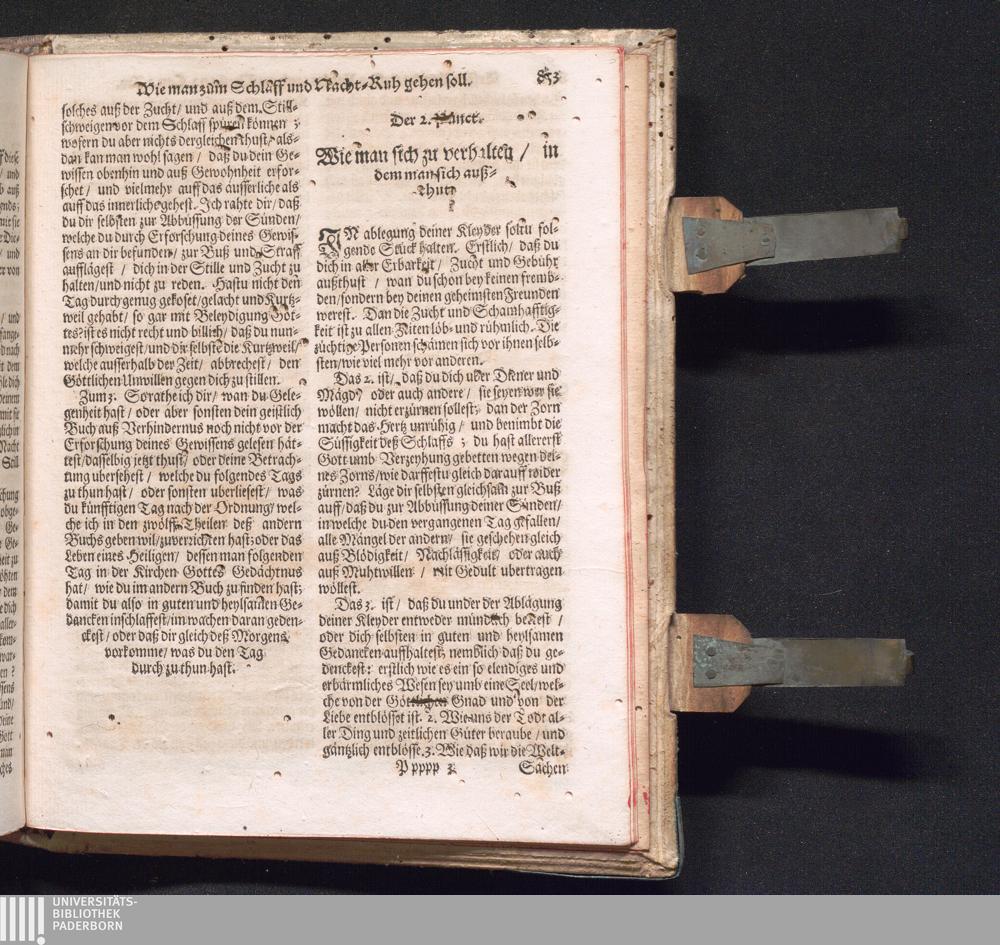 Wie man zum Schlaff und Nacht-Ruh gehen soll. 853
solches auß der Zucht/ und auß dem Still-
schweigen vor dem Schlaff spüren können ;
wofern du aber nichts dergleichen thust/ als-
dan kan man wohl sagen / daß du dein Ge-
wissen obenhin und auß Gewohnheit erfor-
schet / und vielmehr auff das äusserliche als
auff das innerliche gehest. Ich rahte dir/ daß
du dir selbsten zur Abbüssung der Sünden/
welche du durch Erforschung deines Gewis-
sens an dir befunden/ zur Buß und Straff
aufflägest / dich in der Stille und Zucht zu
halten/und nicht zu reden. Hastu nicht den
Tag durch genug gekoset/gelacht und Kurtz-
weil gehabt/ so gar mit Beleydigung Got-
tes? ist es nicht recht und billich/ daß du nun-
mehr schweigest/und dir selbste die Kurtzweil/
welche ausserhalb der Zeit/ abbrechest/ den
Göttlichen Unwillen gegen dich zu stillen.
Zum 3. So rathe ich dir/ wan du Gele-
genheit hast / oder aber sonsten dein geistlich
Buch auß Verhindernus noch nicht vor der
Erforschung deines Gewissens gelesen hät-
test/dasselbig jetzt thust/ oder deine Betrach-
tung ubersehest/ welche du folgendes Tags
zu thun hast / oder sonsten uberliesest/ was
du künfftigen Tag nach der Ordnung/ wel-
che ich in den zwölff Theilen deß andern
Buchs geben wil/zuverrichten hast; oder das
Leben eines Heiligen/ dessen man folgenden
Tag in der Kirchen Gottes Gedächtnus
hat/ wie du im andern Buch zu finden hast;
damit du also in guten und heylsamen Ge-
dancken inschlaffest/im wachen daran geden-
ckest/ oder daß dir gleich deß Morgens
vorkomme/ was du den Tag
durch zu thun hast.
Der 2. Punct.
Wie man sich zu verhalten / in
dem man sich auß-
thut.
IN ablegung deiner Kleyder soltu fol-
gende Stück halten. Erstlich/ daß du
dich in aller Erbarkeit/ Zucht und Gebühr
außthust / wan du schon bey keinen fremb-
den/sondern bey deinen geheimsten Freunden
werest. Dan die Zucht und Schamhafftig-
keit ist zu allen Zeiten lob- und rühmlich. Die
züchtige Personen schämen sich vor ihnen selb-
sten/wie viel mehr vor anderen.
Das 2. ist/ daß du dich uber Diener und
Mägd/ oder auch andere / sie seyen wer sie
wöllen/ nicht erzürnen sollest; dan der Zorn
macht das Hertz unrühig/ und benimbt die
Süssigkeit deß Schlaffs ; du hast allererst
Gott umb Verzeyhung gebetten wegen dei-
nes Zorns/wie darffestu gleich darauff wider
zürnen? Läge dir selbsten gleichsam zur Buß
auff/daß du zur Abbüssung deiner Sünden/
in welche du den vergangenen Tag gefallen/
alle Mängel der andern/ sie geschehen gleich
auß Blödigkeit/ Nachlässigkeit/ oder auch
auß Muhtwillen / mit Gedult ubertragen
wöllest.
Das 3. ist / daß du under der Ablägung
deiner Kleyder entweder mündlich bettest /
oder dich selbsten in guten und heylsamen
Gedancken auffhaltest/ nemblich daß du ge-
denckest: erstlich wie es ein so elendiges und
erbärmliches Wesen sey umb eine Seel/wel-
che von der Göttlichen Gnad und von der
Liebe entblösset ist. 2. Wie uns der Todt al-
ler Ding und zeitlichen Güter beraube / und
gäntzlich entblösse. 3. Wie daß wir die Welt-
Ppppp 3 Sachen
UNIVERSITÄTS-
BIBLIOTHEK
PADERBORN